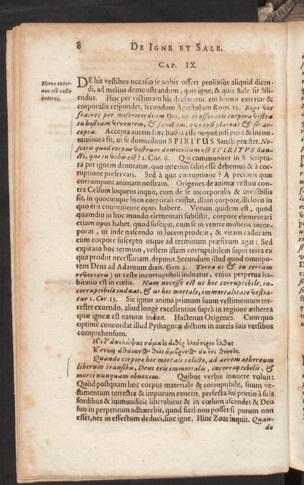 8
DE IGNE ET SALE.
CAP. IX.
Homo exter-
nus est vestis
interni.
DE his vestibus occasio se nobis offert prolixius aliquid dicen-
di, ad melius demonstrandum, quis igne, & quis Sale sit sali-
endus. Hoc per victimam hic declaratur, cui homo exterior &
corporalis respondet, secundum Apostolum Rom. 12. Rogo vos
fratres per misericordiam Dei, ut
in hostiam viventem,
Accepta autem hæc hostia esse nequit nisi pura & incon-
taminata sit, ut sit domicilium SPIRITUS Sancti præter. Ne-
scitis quod corpus vestrum domicilium est SPIRITUS San-
cti, qui in vobis est? 1. Cor. 6. Qui communiter in S. scriptu-
ra per ignem denotatur, quo intus salliri esse debemus & à cor-
ruptione preservari. Sed à qua corruptione? A peccatis quæ
corrumpunt animam nostram. Origenes de anima vestitu con-
tra Celsum loquens inquit, eam de se incorporalis & invisibilis
sit, in quocunque loco corporali existat, illam corporis, illi loco in
quo erit convenientis opus habere. Verum quidem est, quod
quamdiu in hoc mundo elementari subsistit, corpore elementari
etiam opus habet, quod suscipit, cum se in ventre mulieris incor-
porat, ut inde nascendo in lucem prodeat; & vitam caducam
cum corpore suscepto usque ad terminum præfixum agat: Sed
expirato hoc termino, vestem istam corruptibilem supra terra ex
qua prodit necessariam deponit Secundum illud quod omnipo-
tens Deus ad Adamum dixit. Gen. 3. Terra es & in terram
reverteris; ut veste incorruptibili induatur, cuius perpetua ha-
bitatio est in cœlis. Nam necesse est ut hoc corruptibile, in-
corruptibile induat, & ut hoc mortale, immortalitate vestia-
tur 1. Cor. 15. Sic igitur anima primum suum vestimentum ter-
restre exuendo, aliud longè excellentius suprà in regione ætherea
quæ igneæ est naturæ induet. Hactenus Origenes. Cum quo
optimè concordat illud Pythagoræ dictum in aureis suis versibus
comprehensum.
Quando corpore hoc mortale relicto, ad aerem æthereum
liberum transibis, Deus eris immortalis, incorruptibilis, &
morti nunquam obnoxius. Quibus verbis innuere voluit:
Quòd postquam hoc corpus materiale & corruptibile, suum ve-
stimentum terrestre & impurum exuerit, perfecta sui portio à suis
sordibus & immunditie liberabitur & in cœlum ascendet & Deo
suo in perpetuum adhærebit, quod fieri non posset si purum non
esset, nec in effectum deduci, sine igne. Hinc Zoar inquit. Quan-
do